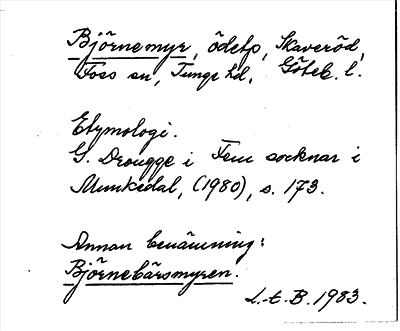 Björnemyr, ödetp, Skaveröd,
Foss sn, Tunge hd, Göteb. l.
Etymologi.
G. Drougge i Fem socknar i
Munkedal, (1980), s. 173.
Annan benämning:
Björnebärsmyren.
L.-E. B. 1983.